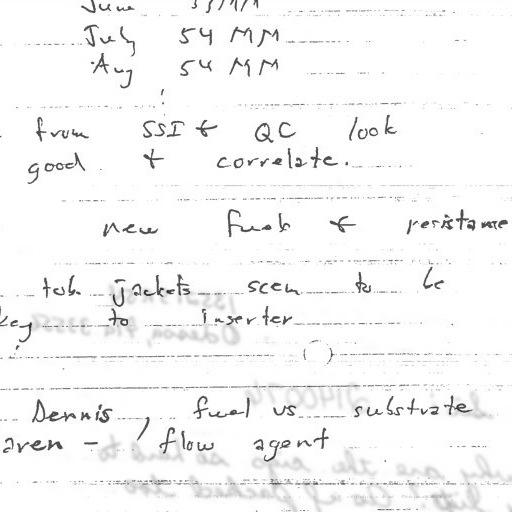 June
July 54 MM
Aug 54 MM
from SSI & QC look
good & correlate.
new & resistance
tub. jackets seem to be
key to inserter
Dennis, fuel vs substrate
aren - flow agent